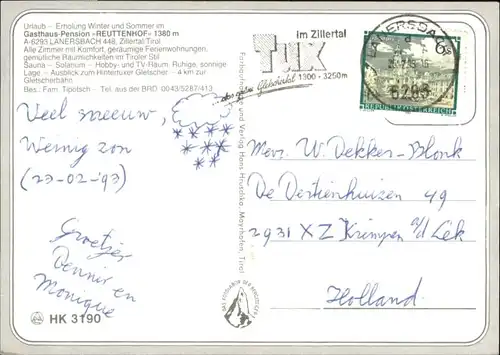 Urlaub – Erholung Winter und Sommer im
Gasthaus-Pension »REUTTENHOF« 1380 m
A-6293 LANERSBACH 448, Zillertal/Tirol
Alle Zimmer mit Komfort, geräumige Ferienwohnungen,
gemütliche Räumlichkeiten im Tiroler Stil
Sauna – Solarium – Hobby- und TV-Raum. Ruhige, sonnige
Lage – Ausblick zum Hintertuxer Gletscher – 4 km zur
Gletscherbahn
Bes.: Fam. Tipotsch – Tel. aus der BRD 0043/5287/413
im Zillertal
Tux
1300 - 3250m
LANERSBACH
6293
REPUBLIK ÖSTERREICH
Veel sneeuw,
Weinig zon
(23-02-'93)
Groetjes
Dennis en
Monique
HK 3190
Farbaufnahme und Verlag Hans Hruschka, Mayrhofen, Tirol
Mevr. W. Dekker-Blonk
De Dertienhuizen 49
2931 XZ Krimpen a/d Lek
Holland